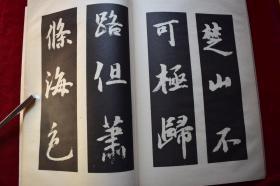 楚山不
可極歸
路但蕭
條海色